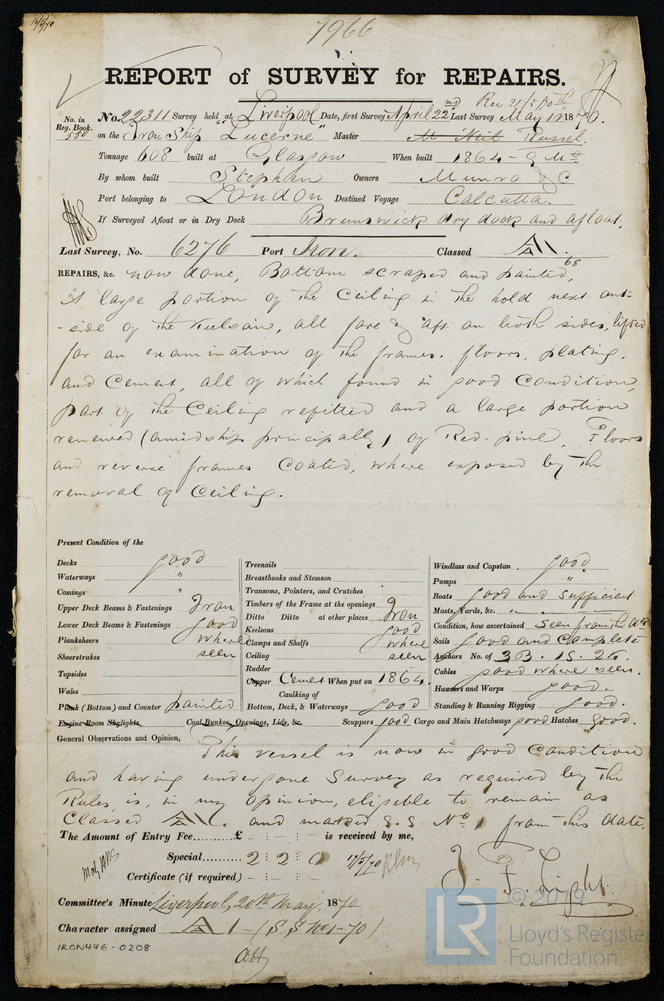 1966
REPORT of SURVEY for REPAIRS.
No. in Reg. Book. 580
No. 22311 Survey held at Liverpool Date, first Survey April 22nd Last Survey May 1870.
on the Iron Ship "Lucerne" Master Russel.
Tonnage 608 built at Glasgow When built 1864
By whom built Stephen Owners Munro & C
Port belonging to London Destined Voyage Calcutta.
If Surveyed Afloat or in Dry Dock Brunswick dry dock and afloat.
Last Survey, No. 6276 Port Iron. Classed A 1. 68
REPAIRS, &c. now done, Bottom scraped and painted,
A large portion of the Ceiling in the hold next out-
-side of the Keelson, all fore & aft on both sides, lifted
for an examination of the frames. floors, plating.
and Cement, all of which found in good Condition,
part of the Ceiling refitted and a large portion
renewed (amidships principally) of Red-pine, Floors
and reverse frames Coated, where exposed by the
removal of Ceiling.
Present Condition of the
Decks good
Waterways "
Comings "
Upper Deck Beams & Fastenings Iron
Lower Deck Beams & Fastenings good
Planksheers where
Sheerstrakes seen
Topsides
Wales
Plank (Bottom) and Counter painted
Engine Room Skylights
Treenails
Breasthooks and Stemson
Transons, Pointers, and Crutches
Timbers of the Frame at the openings
Ditto Ditto at other places Iron
Keelsons good
Clamps and Shelfs where
Ceiling seen
Rudder
Copper Cement When put on 1864.
Caulking of
Bottom, Deck, & Waterways good
Windlass and Capstan good
Pumps "
Boats good and sufficient
Masts, Yards, &c. "
Condition, how ascertained Seen from the
Sails Good and Complete
Anchors No. of 3B. 1S. 2K.
Cables good where seen.
Hawsers and Warps good.
Standing & Running Rigging good.
Coal Bunker Openings, Lids, &c. Scuppers good Cargo and Main Hatchways good Hatches good.
General Observations and Opinion,
This vessel is now in good Condition
and having undergone Survey as required by the
Rules, is, in my opinion, eligible to remain as
Classed A 1. and marked S.S No 1 from this date,
The Amount of Entry Fee.........£ - : - : - is received by me,
Special........ 2 : 2 : 0
Certificate (if required) - : - : -
J. F. Light.
Committee's Minute Liverpool, 20th May, 1870
Character assigned A 1 - (S S No 1-70)
IRON446-0208
© 2019
LR
Lloyd's Register
Foundation